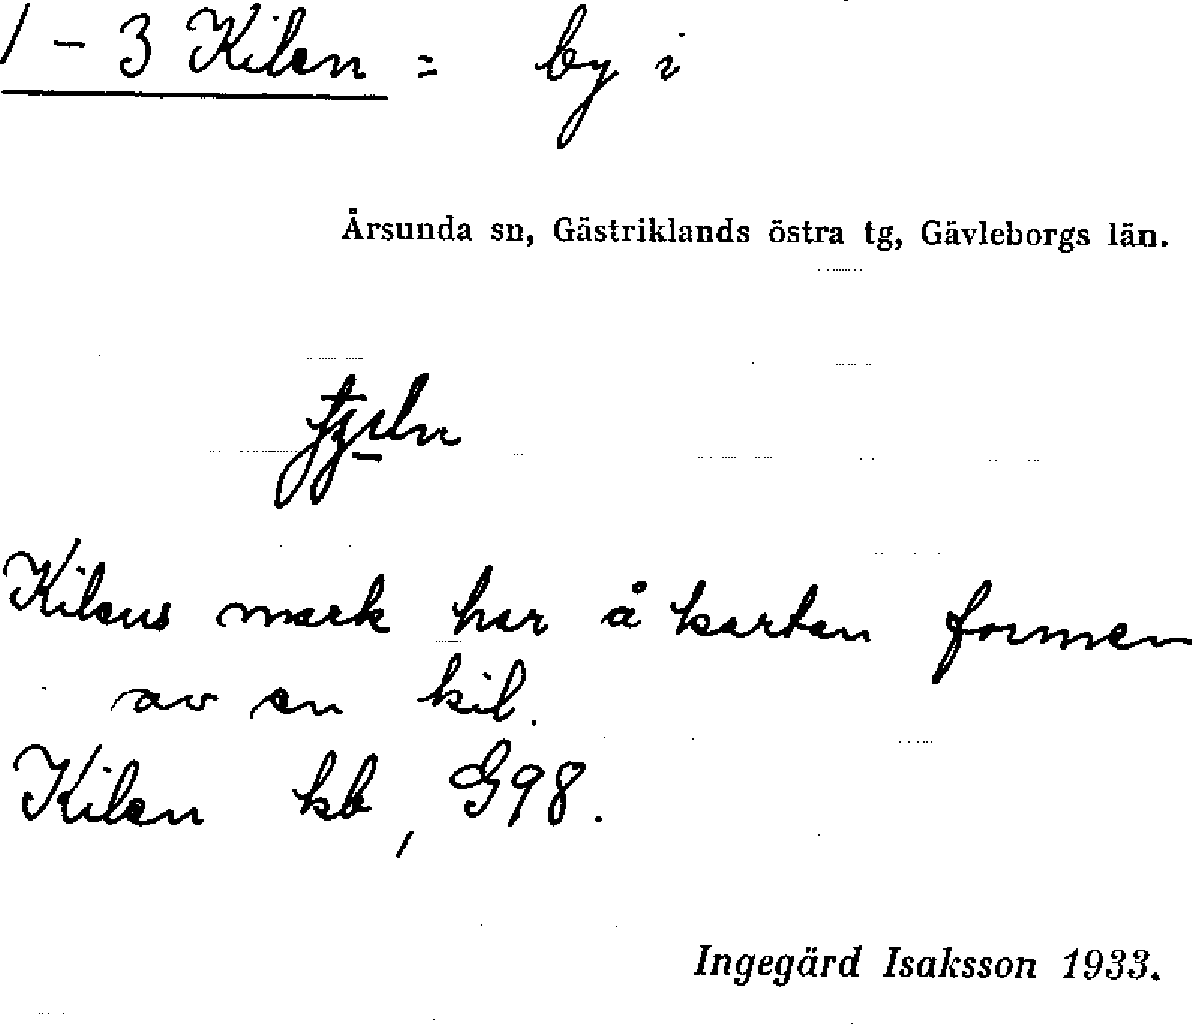 1 - 3 Kilen = by i
Årsunda sn, Gästriklands östra tg, Gävleborgs län.
Kilens mark har å kartan formen
av en kil.
Kilen kb, G98.
Ingegärd Isaksson 1933.